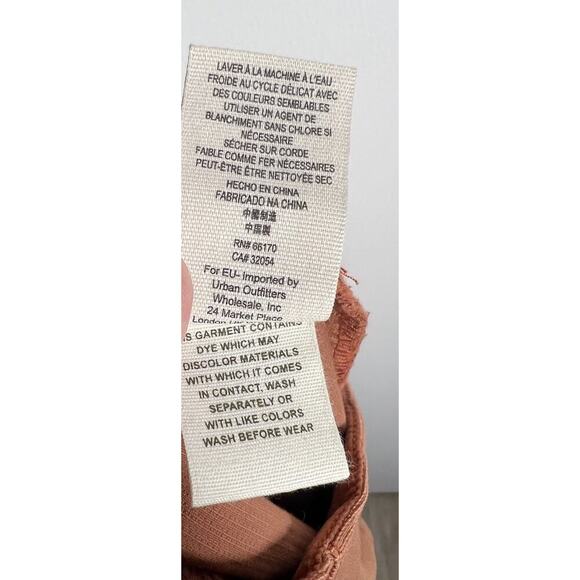 LAVER À LA MACHINE À L'EAU
FROIDE AU CYCLE DÉLICAT AVEC
DES COULEURS SEMBLABLES
UTILISER UN AGENT DE
BLANCHIMENT SANS CHLORE SI
NÉCESSAIRE
SÉCHER SUR CORDE
FAIBLE COMME FER NÉCESSAIRES
PEUT-ÊTRE ÊTRE NETTOYÉE SEC
HECHO EN CHINA
FABRICADO NA CHINA
中國制造
中国製
RN# 66170
CA# 32054
For EU- Imported by
Urban Outfitters
Wholesale, Inc
24 Market Place
London
GARMENT CONTAINS
DYE WHICH MAY
DISCOLOR MATERIALS
WITH WHICH IT COMES
IN CONTACT. WASH
SEPARATELY OR
WITH LIKE COLORS
WASH BEFORE WEAR